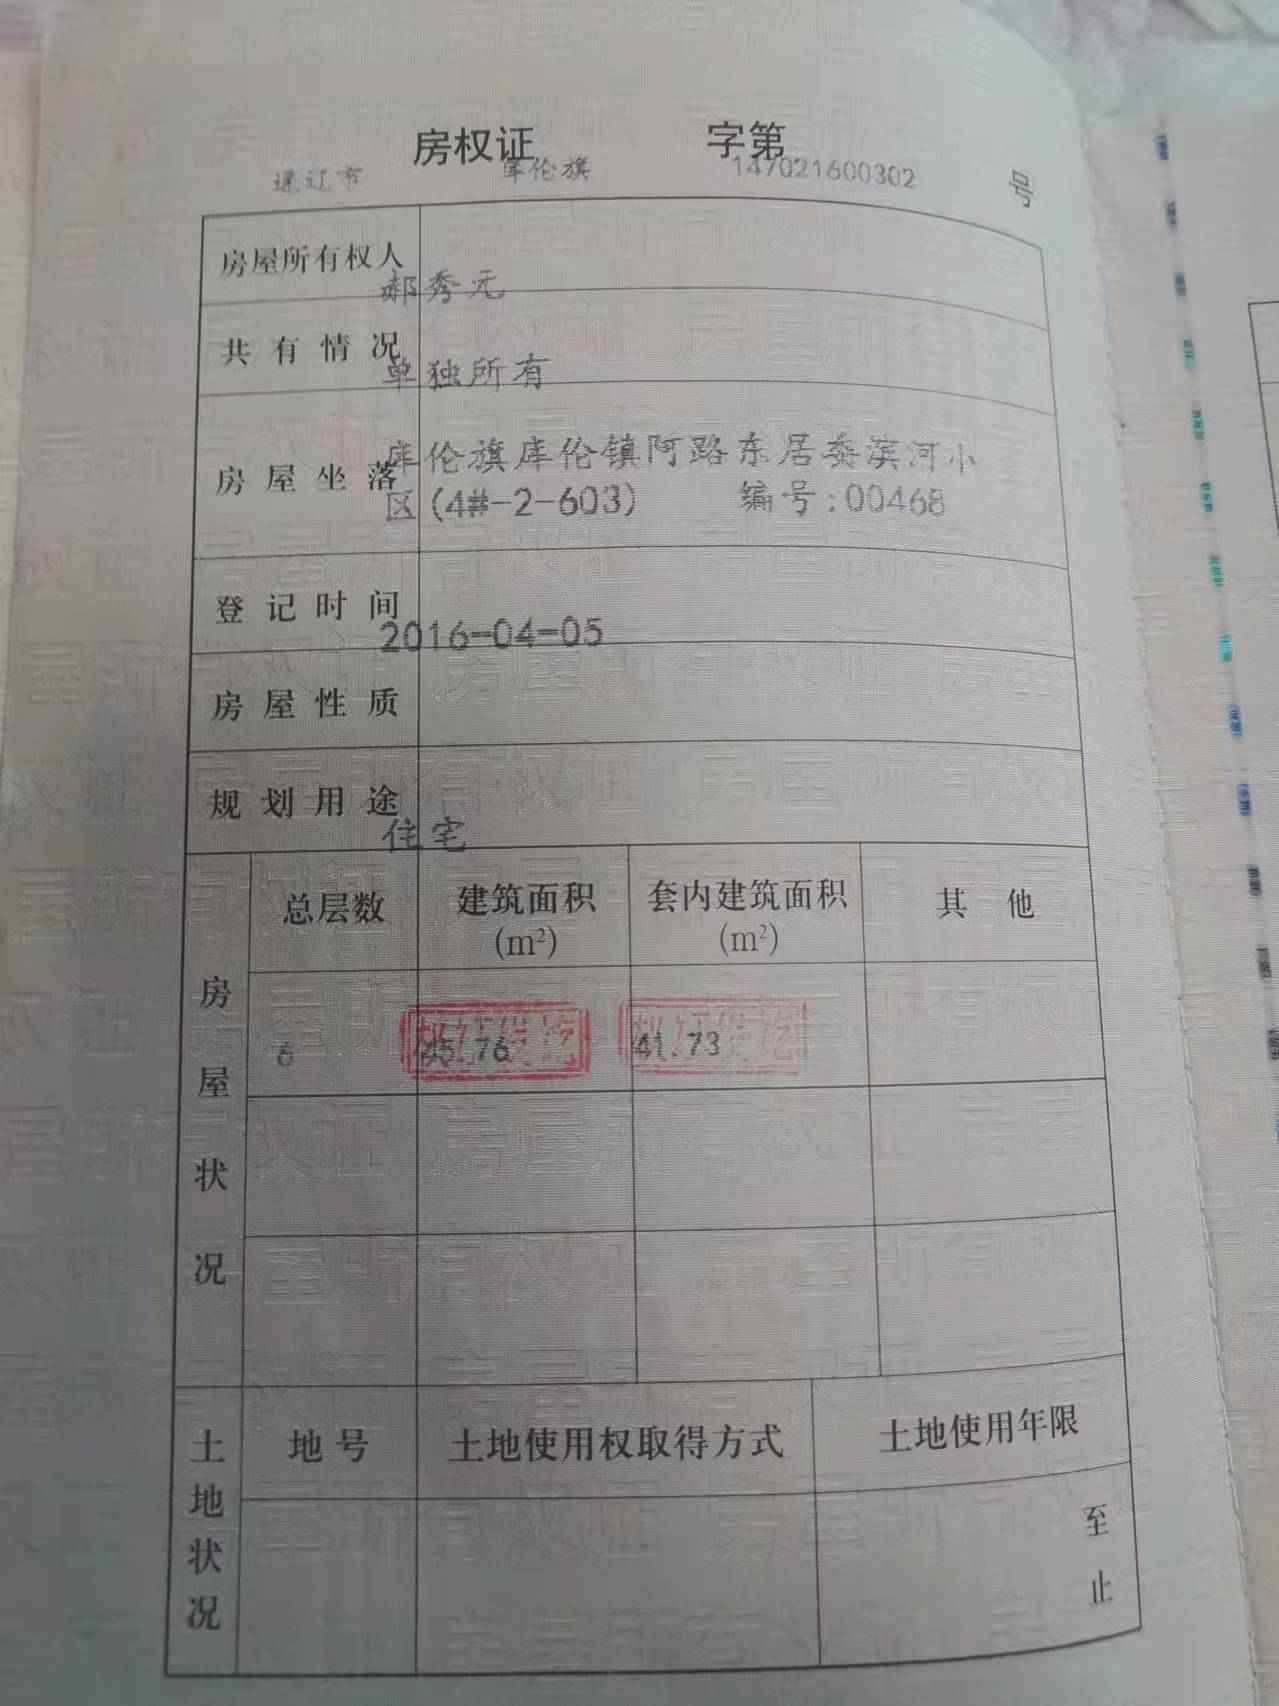 房权证 字第
通辽市 库伦旗 147021600302 号
房屋所有权人 郝秀元
共有情况 单独所有
房屋坐落 库伦旗库伦镇阿路东居委滨河小
区(4#-2-603) 编号:00468
登记时间 2016-04-05
房屋性质
规划用途 住宅
房屋状况
总层数 建筑面积 套内建筑面积 其他
(m²) (m²)
6 45.76 41.73
土地状况
地号 土地使用权取得方式 土地使用年限
至
止